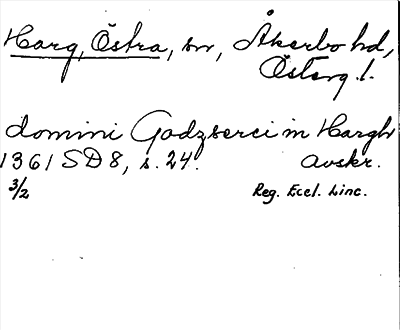 Harg, Östra, sn, Åkerbo hd,
Österg. l.
domini Godzserci in Hargh
1361 SD 8, s. 24. avskr.
3/2 Reg. Eccl. Linc.